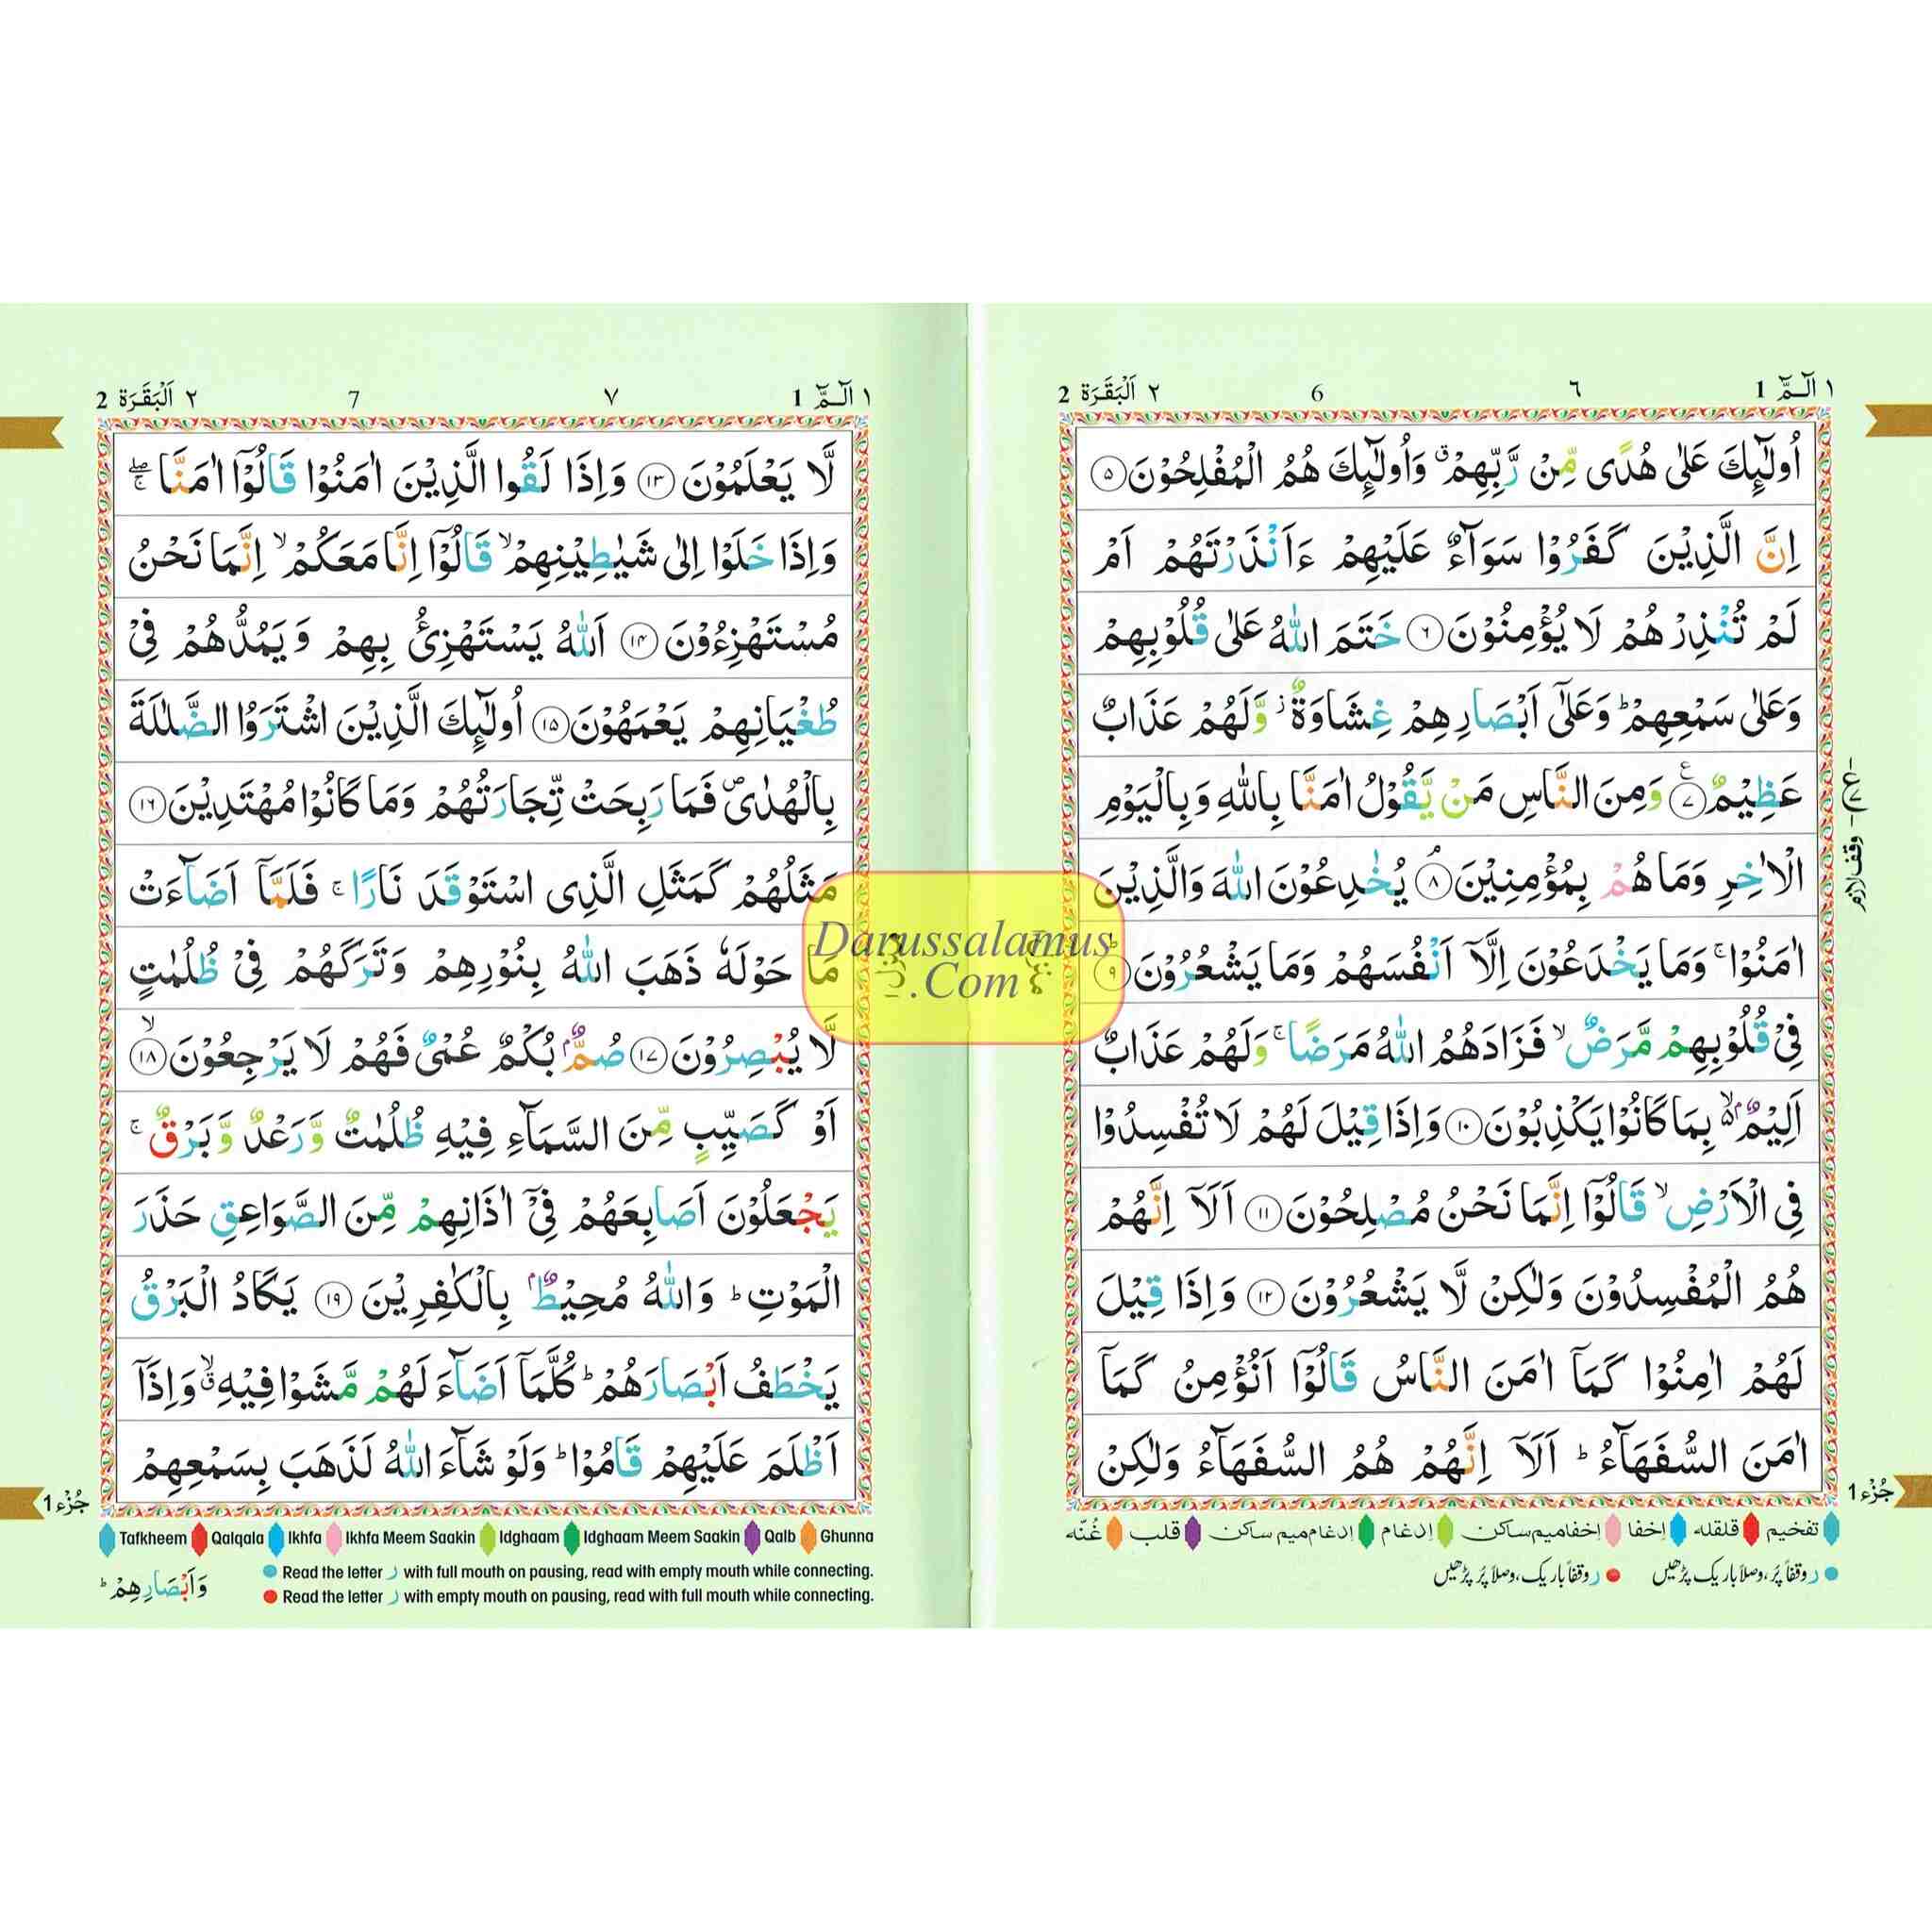 ١ الٓـمّٓ 1 ٦ 6 ٢ اَلْبَقَرَة 2
اُولٰٓئِكَ عَلٰى هُدًى مِّنْ رَّبِّهِمْ ۗ وَاُولٰٓئِكَ هُمُ الْمُفْلِحُوْنَ ٥
اِنَّ الَّذِيْنَ كَفَرُوْا سَوَآءٌ عَلَيْهِمْ ءَاَنْذَرْتَهُمْ اَمْ
لَمْ تُنْذِرْهُمْ لَا يُؤْمِنُوْنَ ٦ خَتَمَ اللّٰهُ عَلٰى قُلُوْبِهِمْ
وَعَلٰى سَمْعِهِمْ ؕ وَعَلٰٓى اَبْصَارِهِمْ غِشَاوَةٌ ز وَّلَهُمْ عَذَابٌ
عَظِيْمٌ ٧ ع وَمِنَ النَّاسِ مَنْ يَّقُوْلُ اٰمَنَّا بِاللّٰهِ وَبِالْيَوْمِ
الْاٰخِرِ وَمَا هُمْ بِمُؤْمِنِيْنَ ۘ ٨ يُخٰدِعُوْنَ اللّٰهَ وَالَّذِيْنَ
اٰمَنُوْا ۚ وَمَا يَخْدَعُوْنَ اِلَّآ اَنْفُسَهُمْ وَمَا يَشْعُرُوْنَ ؕ ٩
فِيْ قُلُوْبِهِمْ مَّرَضٌ ۙ فَزَادَهُمُ اللّٰهُ مَرَضًا ۚ وَلَهُمْ عَذَابٌ
اَلِيْمٌ ۢ ۙ٥ بِمَا كَانُوْا يَكْذِبُوْنَ ١٠ وَاِذَا قِيْلَ لَهُمْ لَا تُفْسِدُوْا
فِى الْاَرْضِ ۙ قَالُوْٓا اِنَّمَا نَحْنُ مُصْلِحُوْنَ ١١ اَلَآ اِنَّهُمْ
هُمُ الْمُفْسِدُوْنَ وَلٰكِنْ لَّا يَشْعُرُوْنَ ١٢ وَاِذَا قِيْلَ
لَهُمْ اٰمِنُوْا كَمَآ اٰمَنَ النَّاسُ قَالُوْٓا اَنُؤْمِنُ كَمَآ
اٰمَنَ السُّفَهَآءُ ؕ اَلَآ اِنَّهُمْ هُمُ السُّفَهَآءُ وَلٰكِنْ
وقف لازم
جُزْء 1
تفخیم قلقله اِخفا اِخفامیم ساکن اِدغام اِدغام میم ساکن قلب غُنّه
ر وقفاً پُر، وصلاً باریک پڑھیں ر وقفاً باریک، وصلاً پُر پڑھیں
١ الٓـمّٓ 1 ٧ 7 ٢ اَلْبَقَرَة 2
لَّا يَعْلَمُوْنَ ١٣ وَاِذَا لَقُوا الَّذِيْنَ اٰمَنُوْا قَالُوْٓا اٰمَنَّا ۖۚ
وَاِذَا خَلَوْا اِلٰى شَيٰطِيْنِهِمْ ۙ قَالُوْٓا اِنَّا مَعَكُمْ ۙ اِنَّمَا نَحْنُ
مُسْتَهْزِءُوْنَ ١٤ اَللّٰهُ يَسْتَهْزِئُ بِهِمْ وَيَمُدُّهُمْ فِيْ
طُغْيَانِهِمْ يَعْمَهُوْنَ ١٥ اُولٰٓئِكَ الَّذِيْنَ اشْتَرَوُا الضَّلٰلَةَ
بِالْهُدٰى ۪ فَمَا رَبِحَتْ تِّجَارَتُهُمْ وَمَا كَانُوْا مُهْتَدِيْنَ ١٦
مَثَلُهُمْ كَمَثَلِ الَّذِى اسْتَوْقَدَ نَارًا ۚ فَلَمَّآ اَضَآءَتْ
مَا حَوْلَهٗ ذَهَبَ اللّٰهُ بِنُوْرِهِمْ وَتَرَكَهُمْ فِيْ ظُلُمٰتٍ
لَّا يُبْصِرُوْنَ ١٧ صُمٌّ ۢ بُكْمٌ عُمْىٌ فَهُمْ لَا يَرْجِعُوْنَ ۙ ١٨
اَوْ كَصَيِّبٍ مِّنَ السَّمَآءِ فِيْهِ ظُلُمٰتٌ وَّرَعْدٌ وَّبَرْقٌ ۚ
يَجْعَلُوْنَ اَصَابِعَهُمْ فِيْٓ اٰذَانِهِمْ مِّنَ الصَّوَاعِقِ حَذَرَ
الْمَوْتِ ؕ وَاللّٰهُ مُحِيْطٌ ۢ بِالْكٰفِرِيْنَ ١٩ يَكَادُ الْبَرْقُ
يَخْطَفُ اَبْصَارَهُمْ ؕ كُلَّمَآ اَضَآءَ لَهُمْ مَّشَوْا فِيْهِ ۙۗ وَاِذَآ
اَظْلَمَ عَلَيْهِمْ قَامُوْا ؕ وَلَوْ شَآءَ اللّٰهُ لَذَهَبَ بِسَمْعِهِمْ
جُزْء 1
Tafkheem Qalqala Ikhfa Ikhfa Meem Saakin Idghaam Idghaam Meem Saakin Qalb Ghunna
Read the letter ر with full mouth on pausing, read with empty mouth while connecting.
Read the letter ر with empty mouth on pausing, read with full mouth while connecting.
وَاَبْصَارِهِمْ ؕ
Darussalamus
.Com